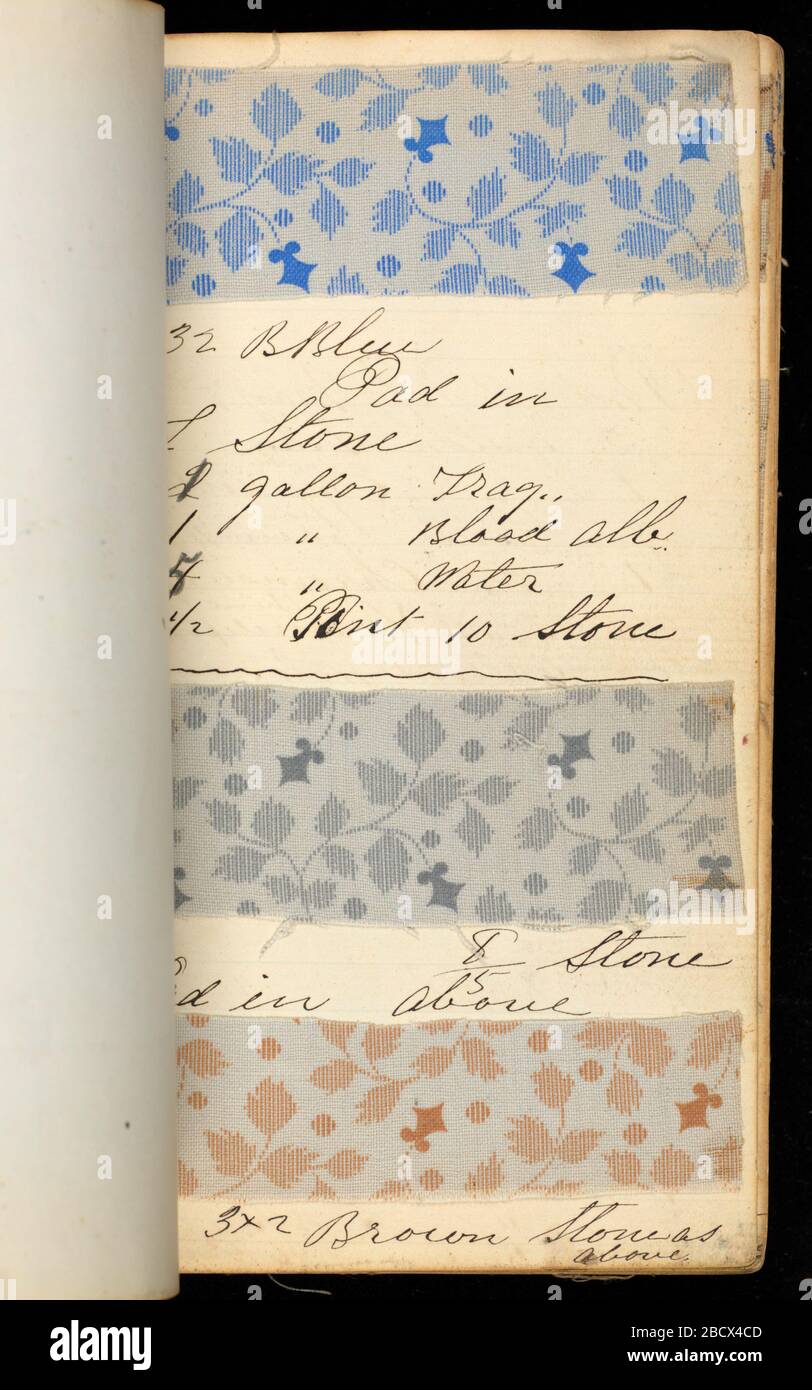 32 B Blue
Pad in
Stone
gallon Trag.,
1 " Blood alb.
" Water
1/2 Pint 10 Stone
8/5 Stone
d in above
3x2 Brown Stone as
above.
alamy
Image ID: 2BCX4CD
www.alamy.com